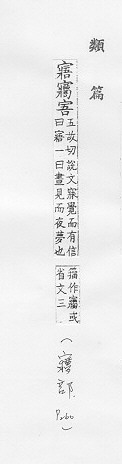 類篇
寤
五故切說文寐覺而有信
曰寤一曰晝見而夜夢也
籀作或
省文三
(㝱部 P260)